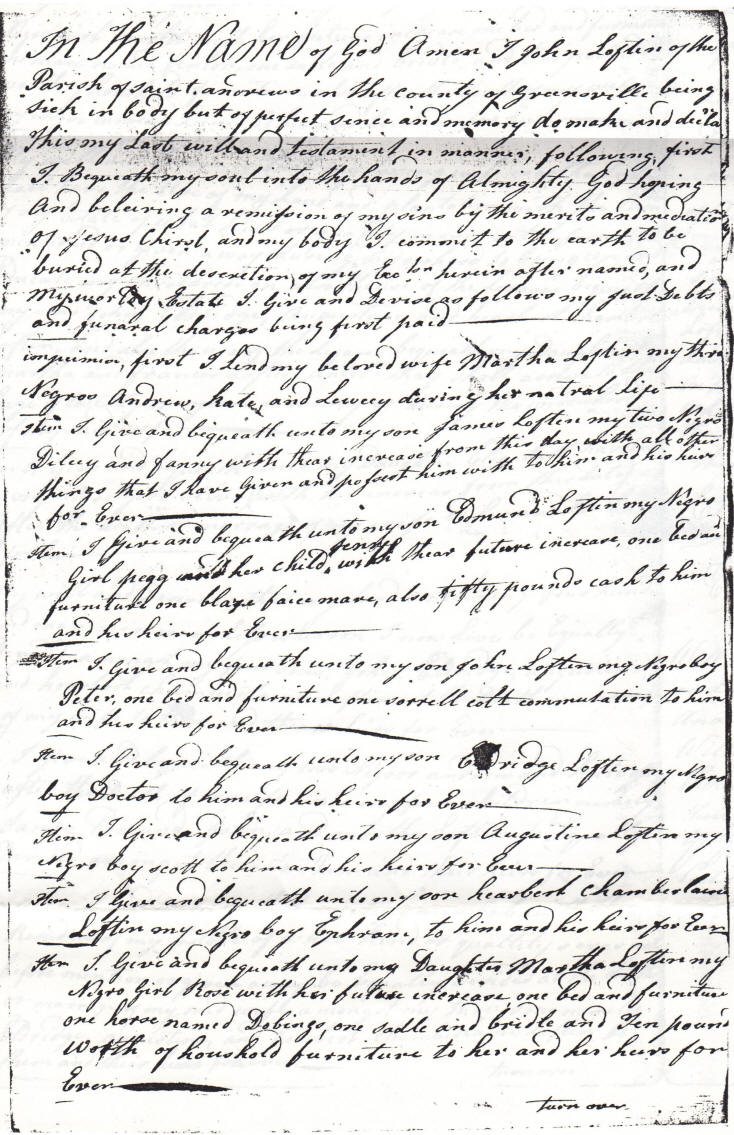 In The Name of God Amen I John Loftin of the
Parish of saint andrews in the county of Greensville being
sick in body but of perfect sence and memory do make and decla
This my Last will and testament in manner, following, first
I. Bequeath my soul into the hands of Almighty God hoping
And beleiving a remission of my sins by the merits and mediatio
of Jesus Chirst, and my body I commit to the earth to be
buried at the descretion of my herein after named, and
My Estate I. Give and Devise as follows my Just Debts
and funaral charges being first paid
first I Lend my beloved wife Martha Loftin my thre
Negros Andrew, Kate, and Lewcey during her natral Life
Item I. Give and bequeath unto my son James Loften my two Negro
Dilcey and fanny with thear increase from this day with all other
things that I have Given and possest him with to him and his heirs
for Ever
Item, I Give and bequeath unto my son Edmund Loften my Negro
Girl pegg and her child Jenny with thear future increase, one bed and
furniture one blaze faice mare, also fifty pounds cash to him
and his heirs for Ever
Item I. Give and bequeath unto my son John Loften my Negro boy
Peter, one bed and furniture one sorrell colt commutation to him
and his heirs for Ever
Item I. Give and bequeath unto my son Loften my Negro
boy Doctor to him and his heirs for Ever
Item I. Give and bequeath unto my son Augustine Loften my
Negro boy scott to him and his heirs for Ever
Item I Give and bequeath unto my son hearbert Chamberlaine
Loftin my Negro boy Ephram, to him and his heirs for Ever
Item I. Give and bequeath unto my Daughter Martha Loften my
Negro Girl Rose with her future increase, one bed and furniture
one horse named Dobings, one sadle and bridle and Ten pound
worth of houshold furniture to her and her heirs for
Ever
turn over